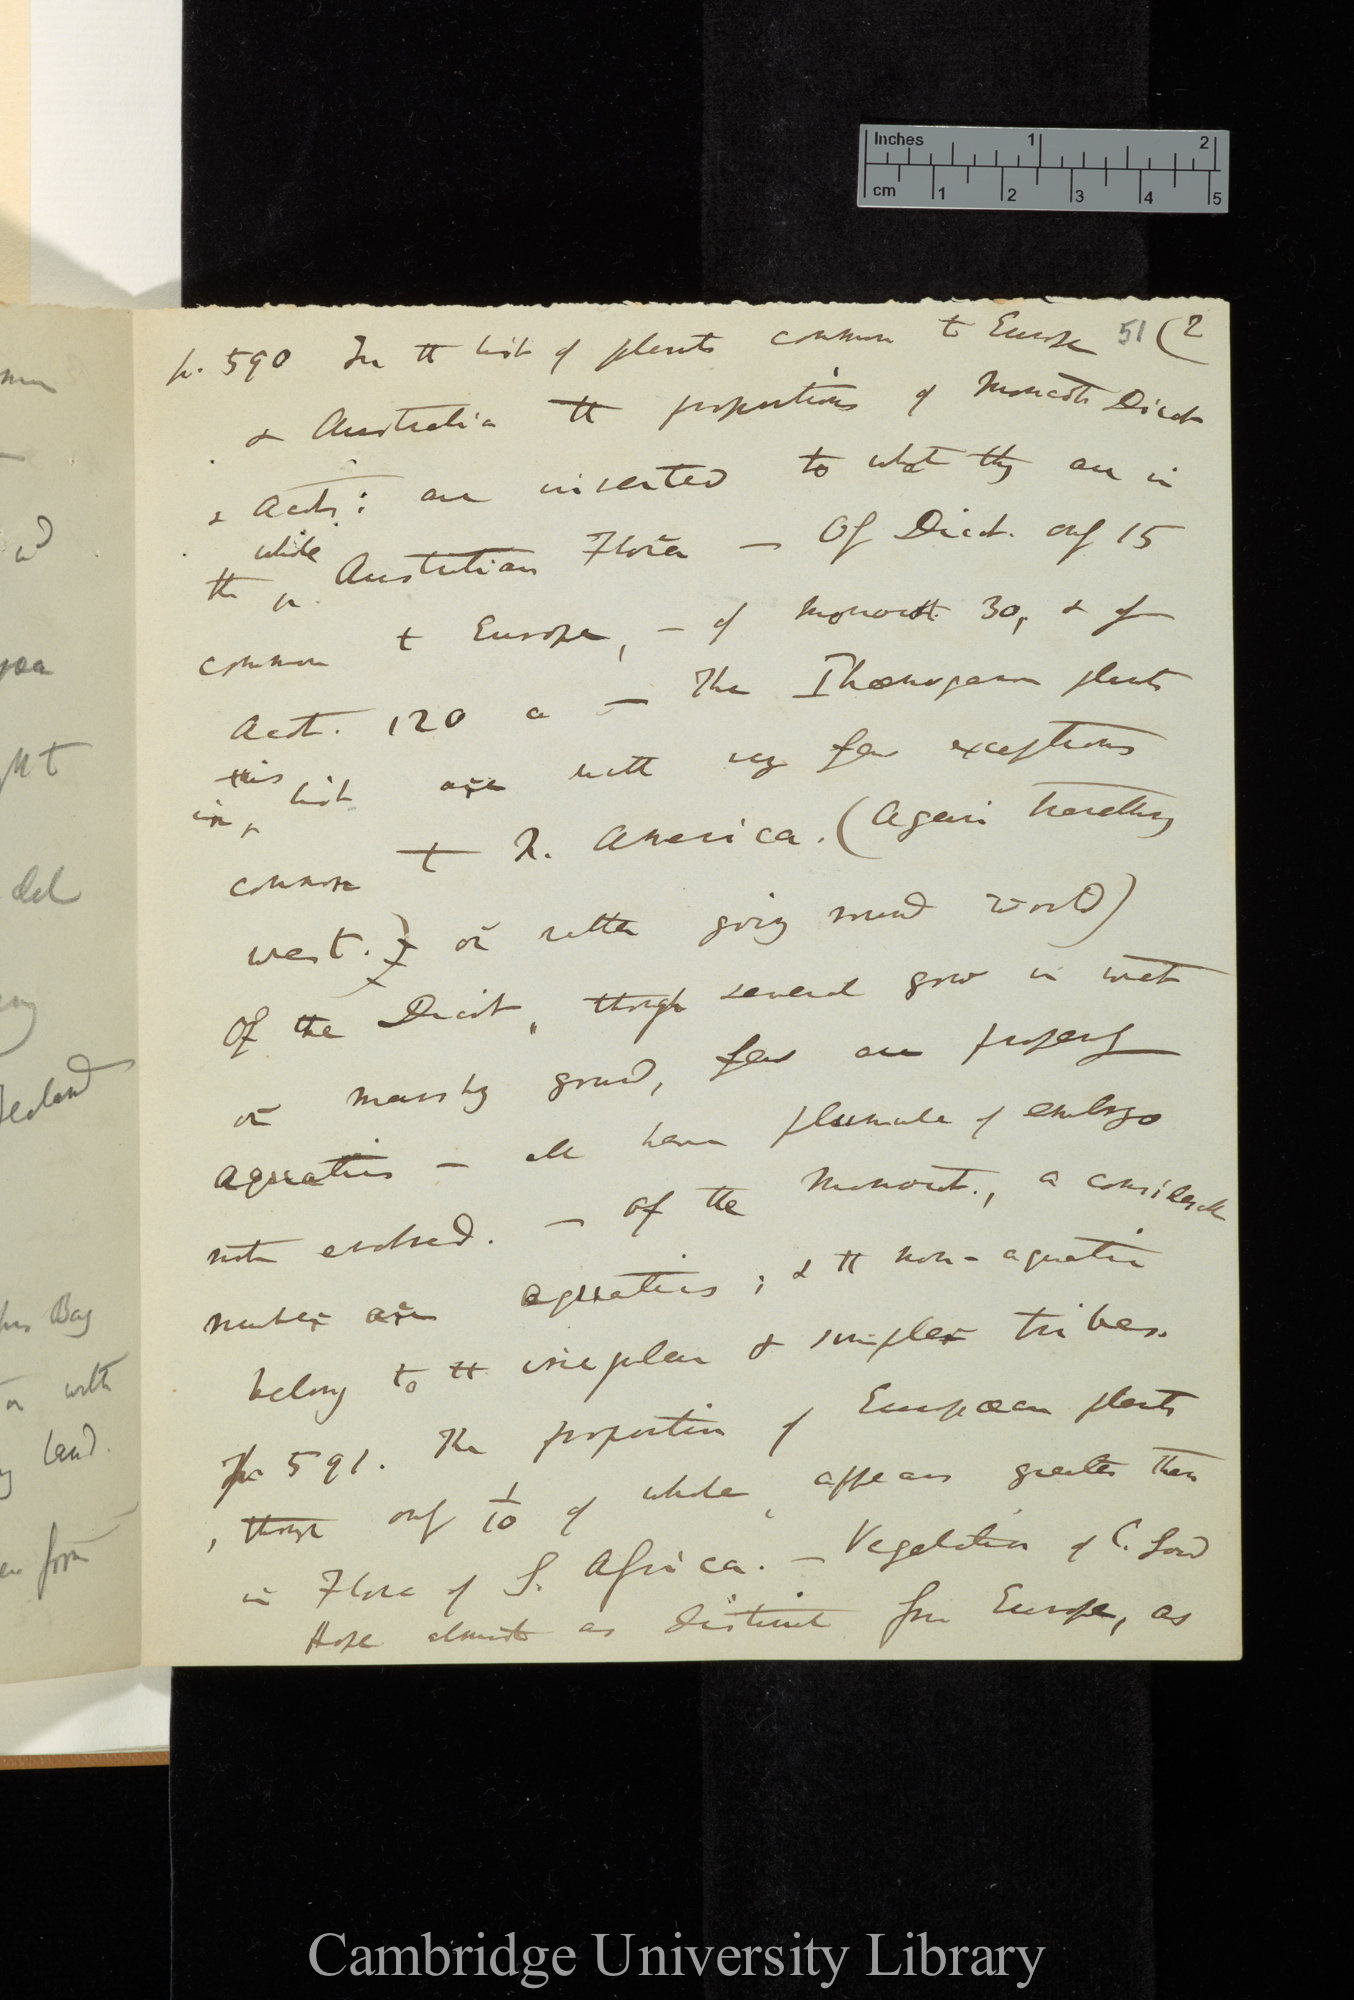 Inches 1 2
cm 1 2 3 4 5
51 (2
p. 590 In the list of plants common to Europe
& Australia the proportions of Monocot Dicot
& Acot: are inverted to what they are in
the whole Australian Flora — Of Dicot. only 15
common to Europe, — of Monocot. 30, & of
Acot. 120 — The Phænogam plants
in this list are with very few exceptions
common to N. America. (Again travelling
west. or rather going round world)
Of the Dicot, though several grow in wet
or marshy ground, few are properly
aquatics — all have plumula of embryo
not evolved. — Of the Monocot., a considerable
number are aquatics; & the non-aquatic
belong to the simpler tribes.
p. 591. The proportion of European plants
, though only 1/10 of whole, appears greater than
in Flora of S. Africa. — Vegetation of C. Good
Hope almost as distinct from Europe, as
Zealand
Bay
with
land.
from
Cambridge University Library